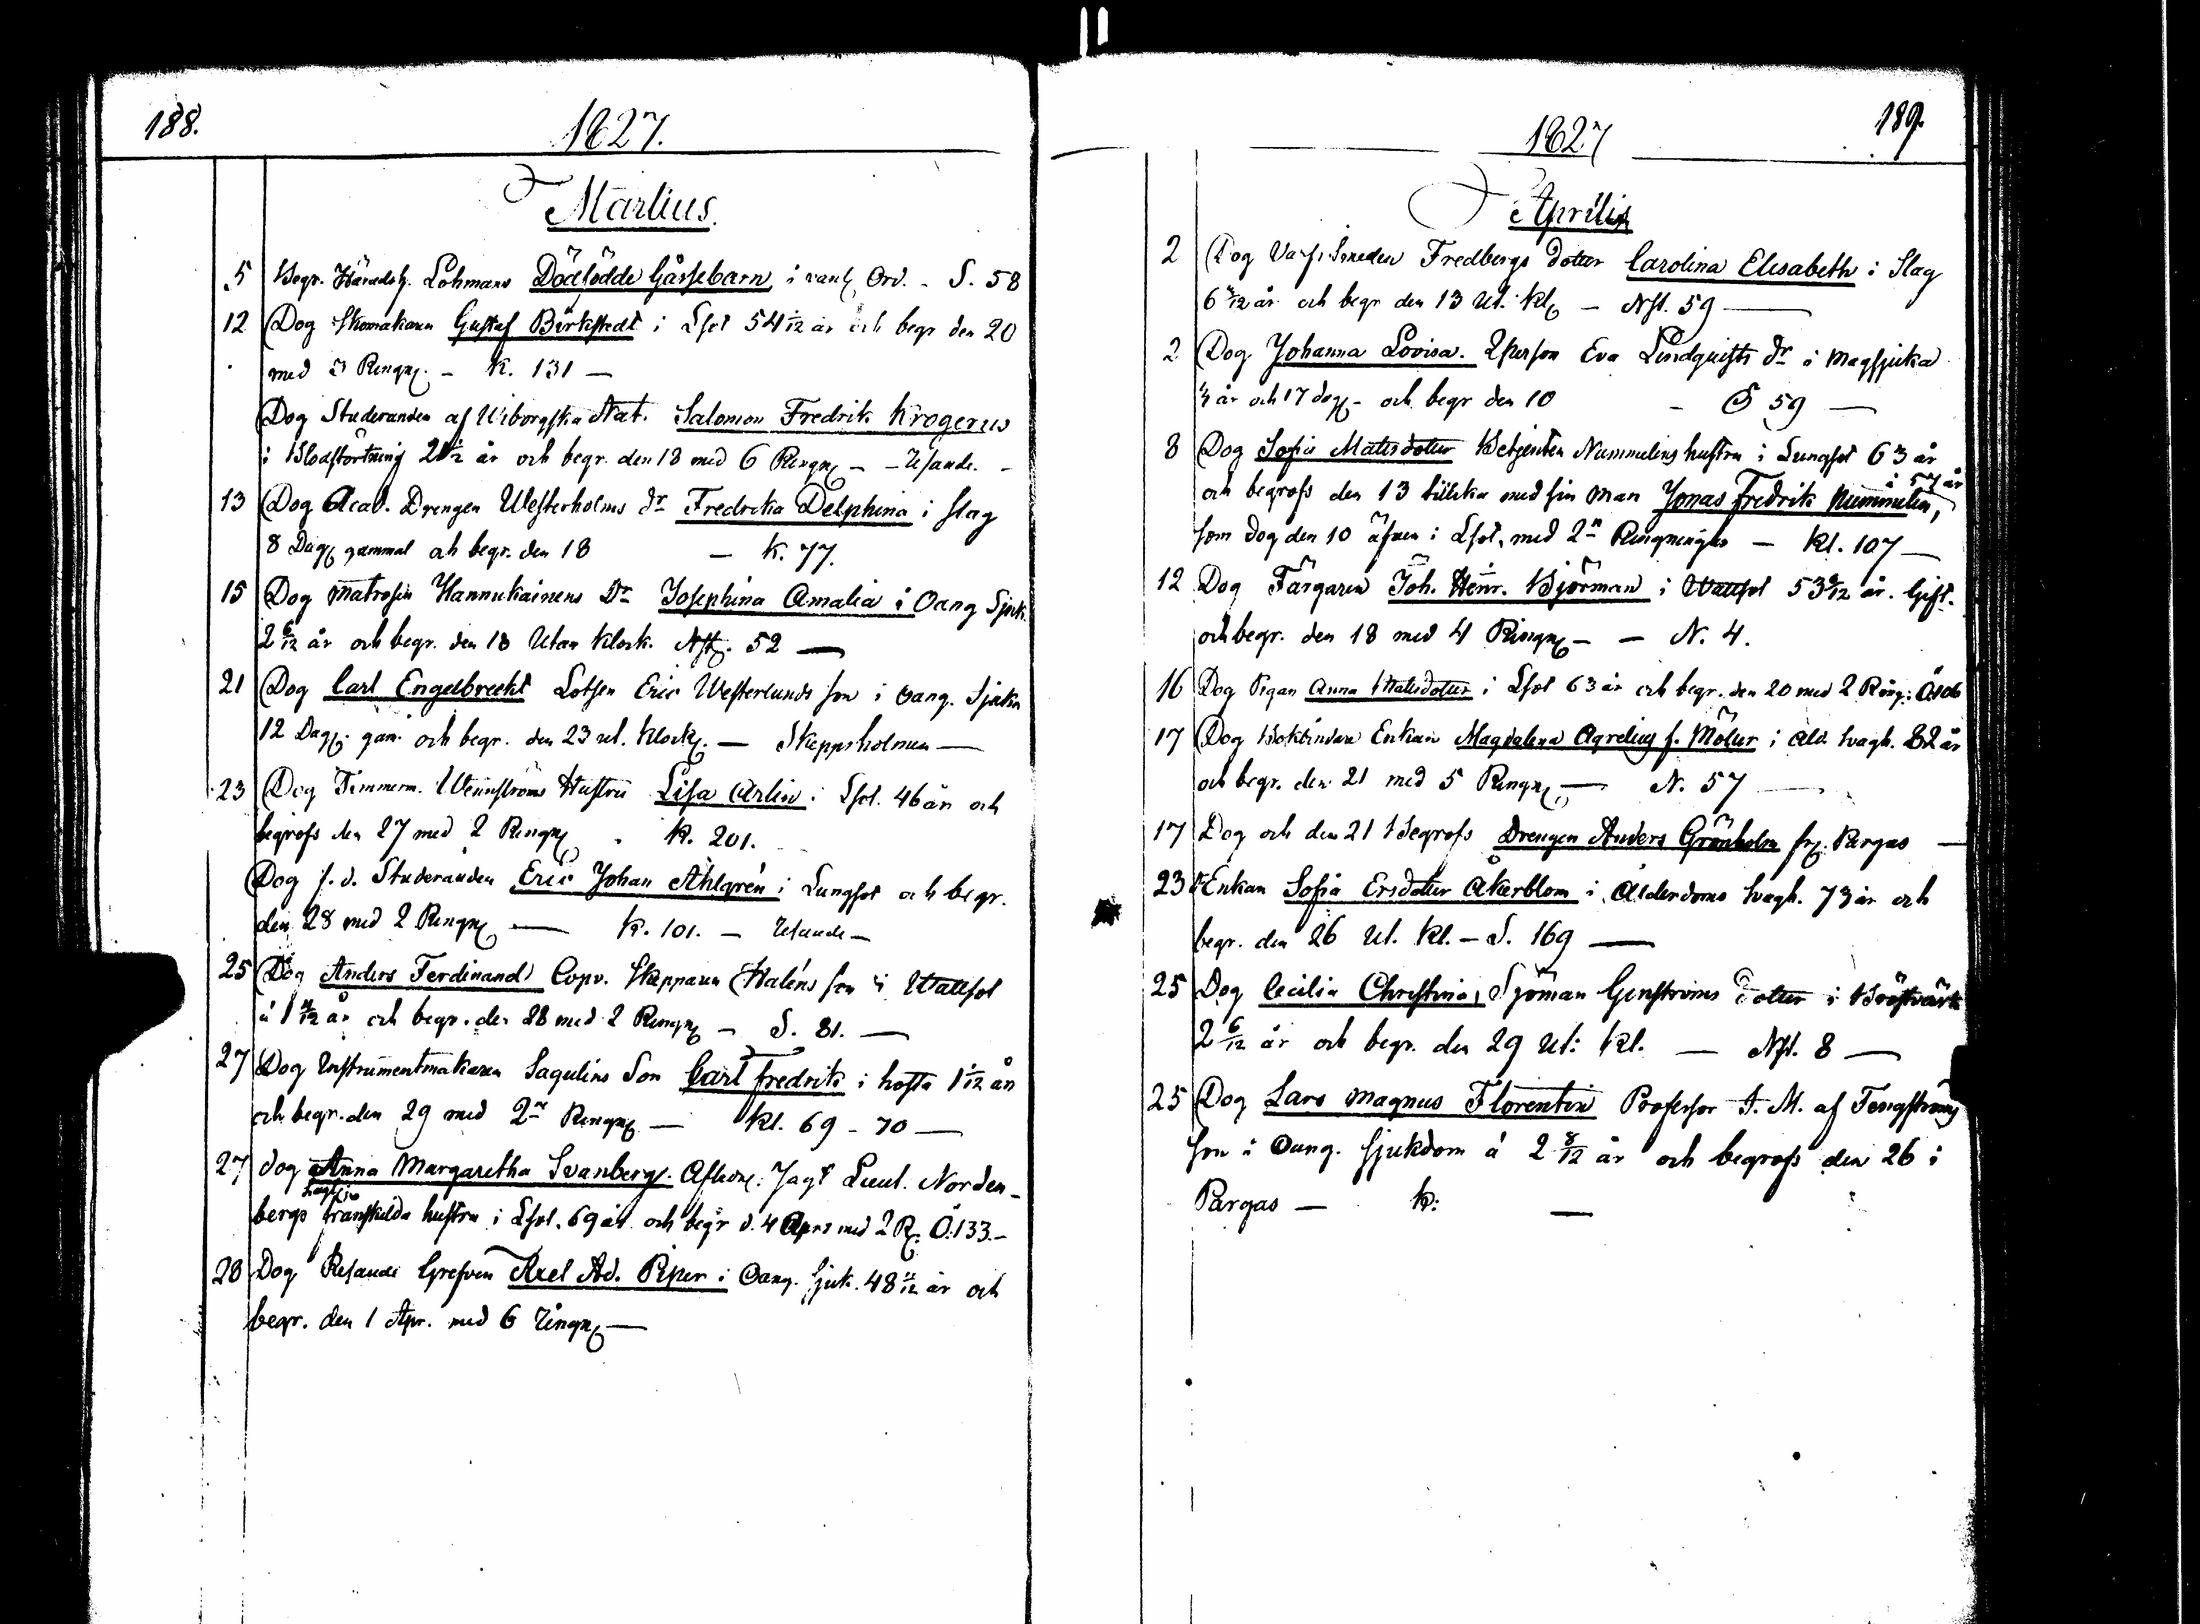 188.
1827.
Martius.
5 Begr. Häradsh. Lohmans Dödfödde Gåssebarn, i vanl. Ord. - S. 58
12 Dog Skomakaren Gustaf Björkstedt i Lsot 54 1/12 år och begr den 20
med 3 Ringn. - K. 131 -
Dog Studeranden af Wiborgska Nat. Salomon Fredrik Krogerus
i Blodstörtning 21 1/2 år och begr. den 18 med 6 Ringn - - Resande. -
13 Dog Acad. Drengen Westerholms dr Fredrika Delphina i slag
8 Dag. gammal och begr. den 18 - K. 77.
15 Dog Matrosen Hannukainens Dr Josephina Amalia i Oang Sjuk.
2 6/12 år och begr. den 18 Utan Klock. Nst. 52 -
21 Dog Carl Engelbrecht Lotsen Eric Westerlunds son i oang. Sjukn
12 Dag. gam. och begr. den 23 ut. Klock. - Skeppsholmen -
23 Dog Timmerm. Wennströms Hustru Lisa Arlin i Lsot. 46 år och
begrofs den 27 med 2 Ringn. K. 201.
Dog f. d. Studeranden Eric Johan Ahlgrén i Lungsot och begr.
den 28 med 2 Ringn - K. 101. - Resande -
25 Dog Anders Ferdinand Copv. Skepparen Haléns son i Wattsot
á 1 11/12 år och begr. den 28 med 2 Ringn - S. 81. -
27 Dog Instrumentmakaren Sagulins Son Carl Fredrik i hosta 1 1/12 år
och begr. den 29 med 2ne Ringn - Kl. 69 - 70 -
27 dog Anna Margaretha Svanberg. Afledn. Jagt Lieut. Norden-
bergs franskilda hustru i Lsot. 69 år och begr d. 4 Apr med 2 R. Ö. 133. -
28 Dog Resande Grefven Axel Ad. Piper i Oang. sjuk. 48 11/12 år och
begr. den 1 Apr. med 6 Ringn -
189.
1827
Aprilis
2 Dog Varfs Smeden Fredbergs dotter Carolina Elisabeth i Slag
6 3/12 år och begr den 13 Ut. Kl. - Nst. 59 -
2 Dog Johanna Lovisa. Qperson Eva Lindquists dr i Magsjuka
1/4 år och 17 dag. - och begr den 10 - S 59 -
8 Dog Sofia Matsdotter Betjenten Nummelins hustru i Lungsot 63 år
och begrofs den 13 tillika med sin man Jonas Fredrik Nummelin, á 57 år
som dog den 10 äfven i Lsot, med 2ne Ringningar - Kl. 107 -
12 Dog Färgaren Joh. Henr. Björman i Wattsot 53 9/12 år. Gift.
och begr. den 18 med 4 Ringn - - N. 4.
16 Dog Pigan Anna Matsdotter i Lsot 63 år och begr. den 20 med 2 Ring:
17 Dog Bokbindare Enkan Magdalena Agrelius f. Möller i Ald. svagh. 82 år
och begr. den 21 med 5 Ringn - N. 57
17 Dog och den 21 Begrofs Drengen Anders Grönholm fr. Pargas -
23 Enkan Sofia Ersdotter Åkerblom i Ålderdoms svagh. 73 år och
begr. den 26 Ut. Kl. - S. 169 -
25 Dog Cecilia Christina, Sjöman Genströms dotter i Bröstvärk
2 6/12 år och begr. den 29 Ut: Kl. - Nst. 8 -
25 Dog Lars Magnus Florentin Professor J. M. af Tengströms
son i Oang. sjukdom á 2 8/12 år och begrofs den 26 i
Pargas - K: -